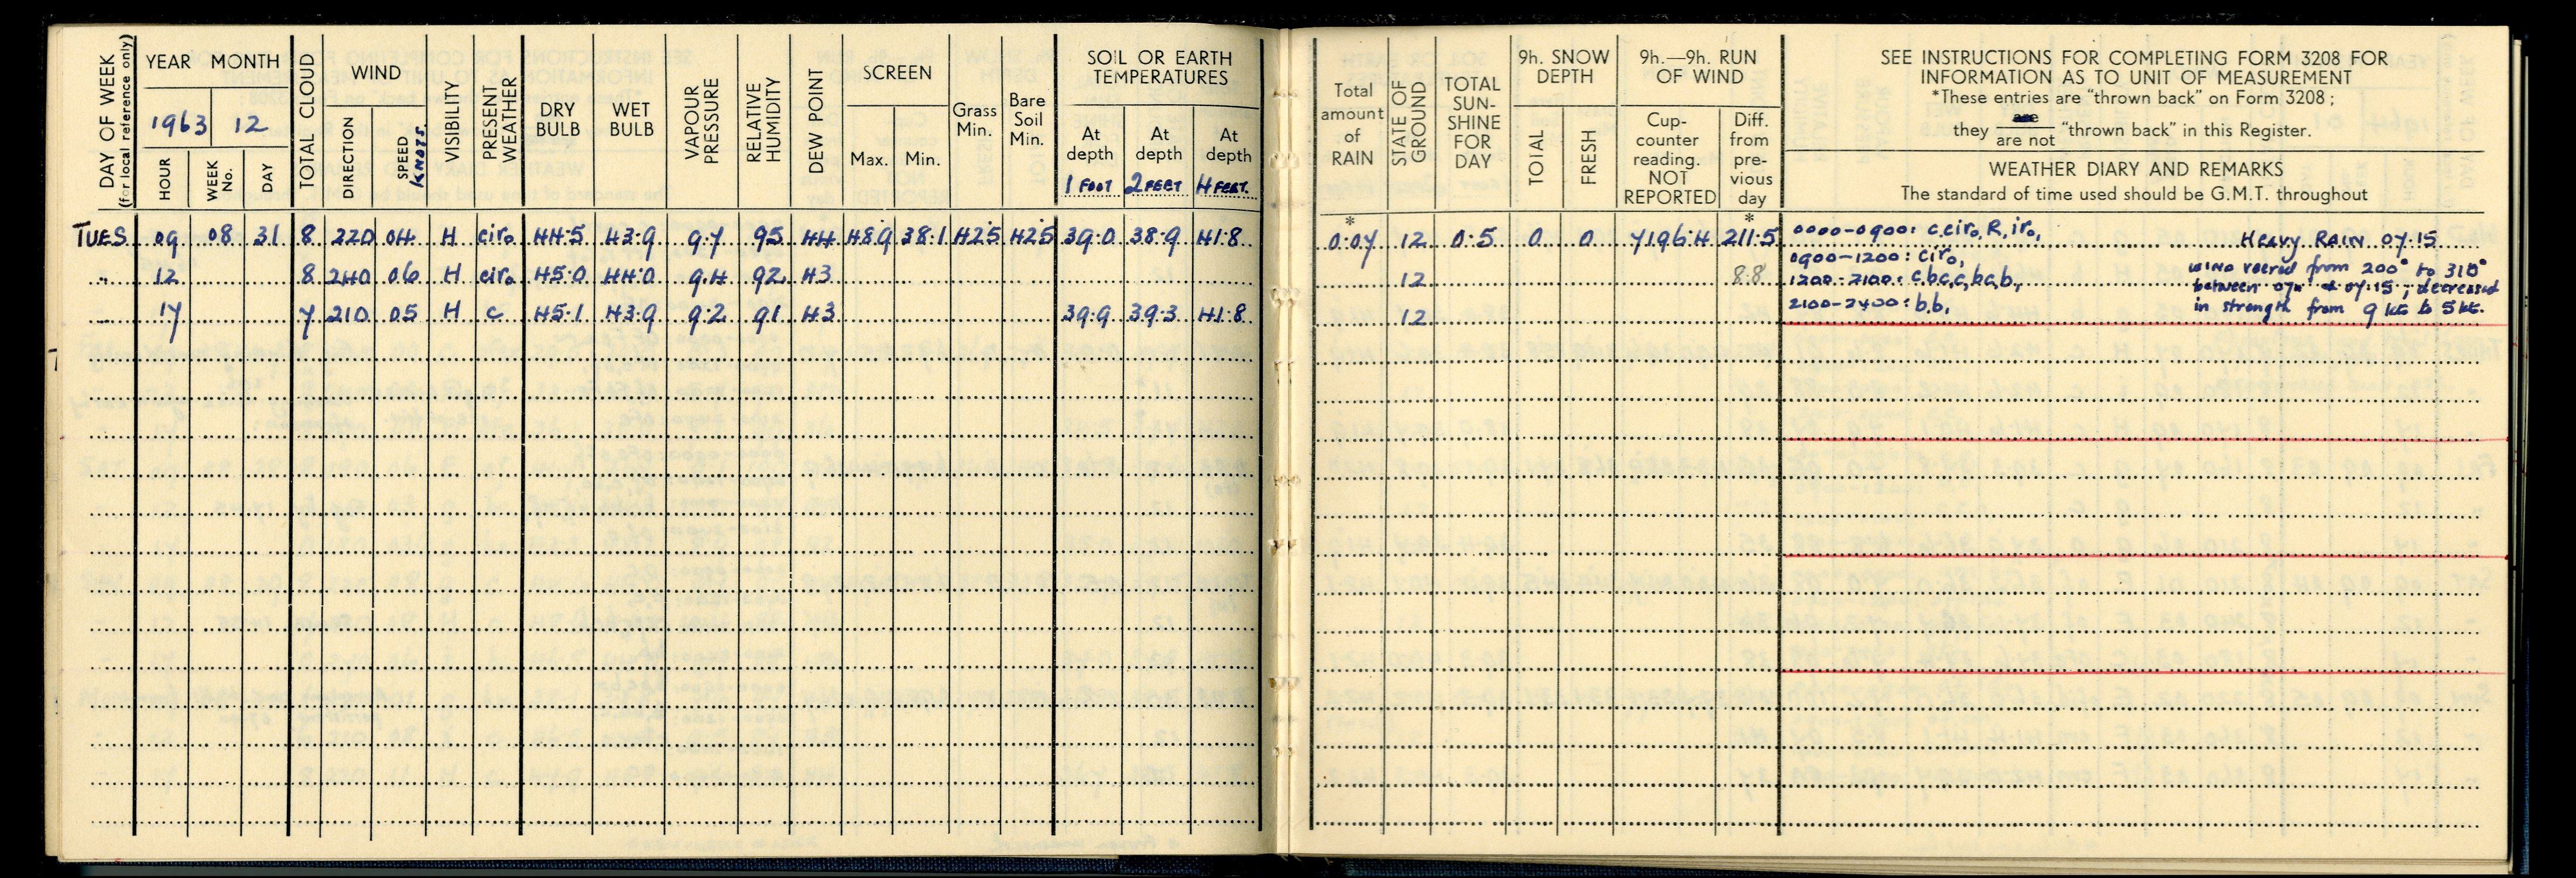 DAY OF WEEK
(for local reference only)
YEAR MONTH
1963 12
HOUR
WEEK No.
DAY
TOTAL CLOUD
WIND
DIRECTION
SPEED
KNOTS.
VISIBILITY
PRESENT WEATHER
DRY BULB
WET BULB
VAPOUR PRESSURE
RELATIVE HUMIDITY
DEW POINT
SCREEN
Max. Min.
Grass Min.
Bare Soil Min.
SOIL OR EARTH
TEMPERATURES
At depth 1 FOOT
At depth 2 FEET
At depth 4 FEET.
Total amount of RAIN
STATE OF GROUND
TOTAL SUN-SHINE FOR DAY
9h. SNOW DEPTH
TOTAL
FRESH
9h.—9h. RUN OF WIND
Cup-counter reading. NOT REPORTED
Diff. from pre-vious day
SEE INSTRUCTIONS FOR COMPLETING FORM 3208 FOR
INFORMATION AS TO UNIT OF MEASUREMENT
*These entries are "thrown back" on Form 3208;
they are / are not "thrown back" in this Register.
WEATHER DIARY AND REMARKS
The standard of time used should be G.M.T. throughout
TUES 09 08 31 8 220 04 4 ciro 44.5 43.9 9.7 95 44 48.9 38.1 42.5 42.5 39.0 38.9 41.8 * 0.07 12 0.5 0 0 7196.4 * 211.5 0000-0900: c,ciro, R, iro, HEAVY RAIN 07.15
.. 12 8 240 06 4 ciro 45.0 44.0 9.4 92 43 12 8.8
0900-1200: ciro,
1200-2100: c,bc,c,bc,b,
wind veered from 200° to 310°
between 07 & 07.15; decreased
.. 17 7 210 05 4 c 45.1 43.9 9.2 91 43 39.9 39.3 41.8 12
2100-2400: b,b,
in strength from 9 kts to 5 kts.